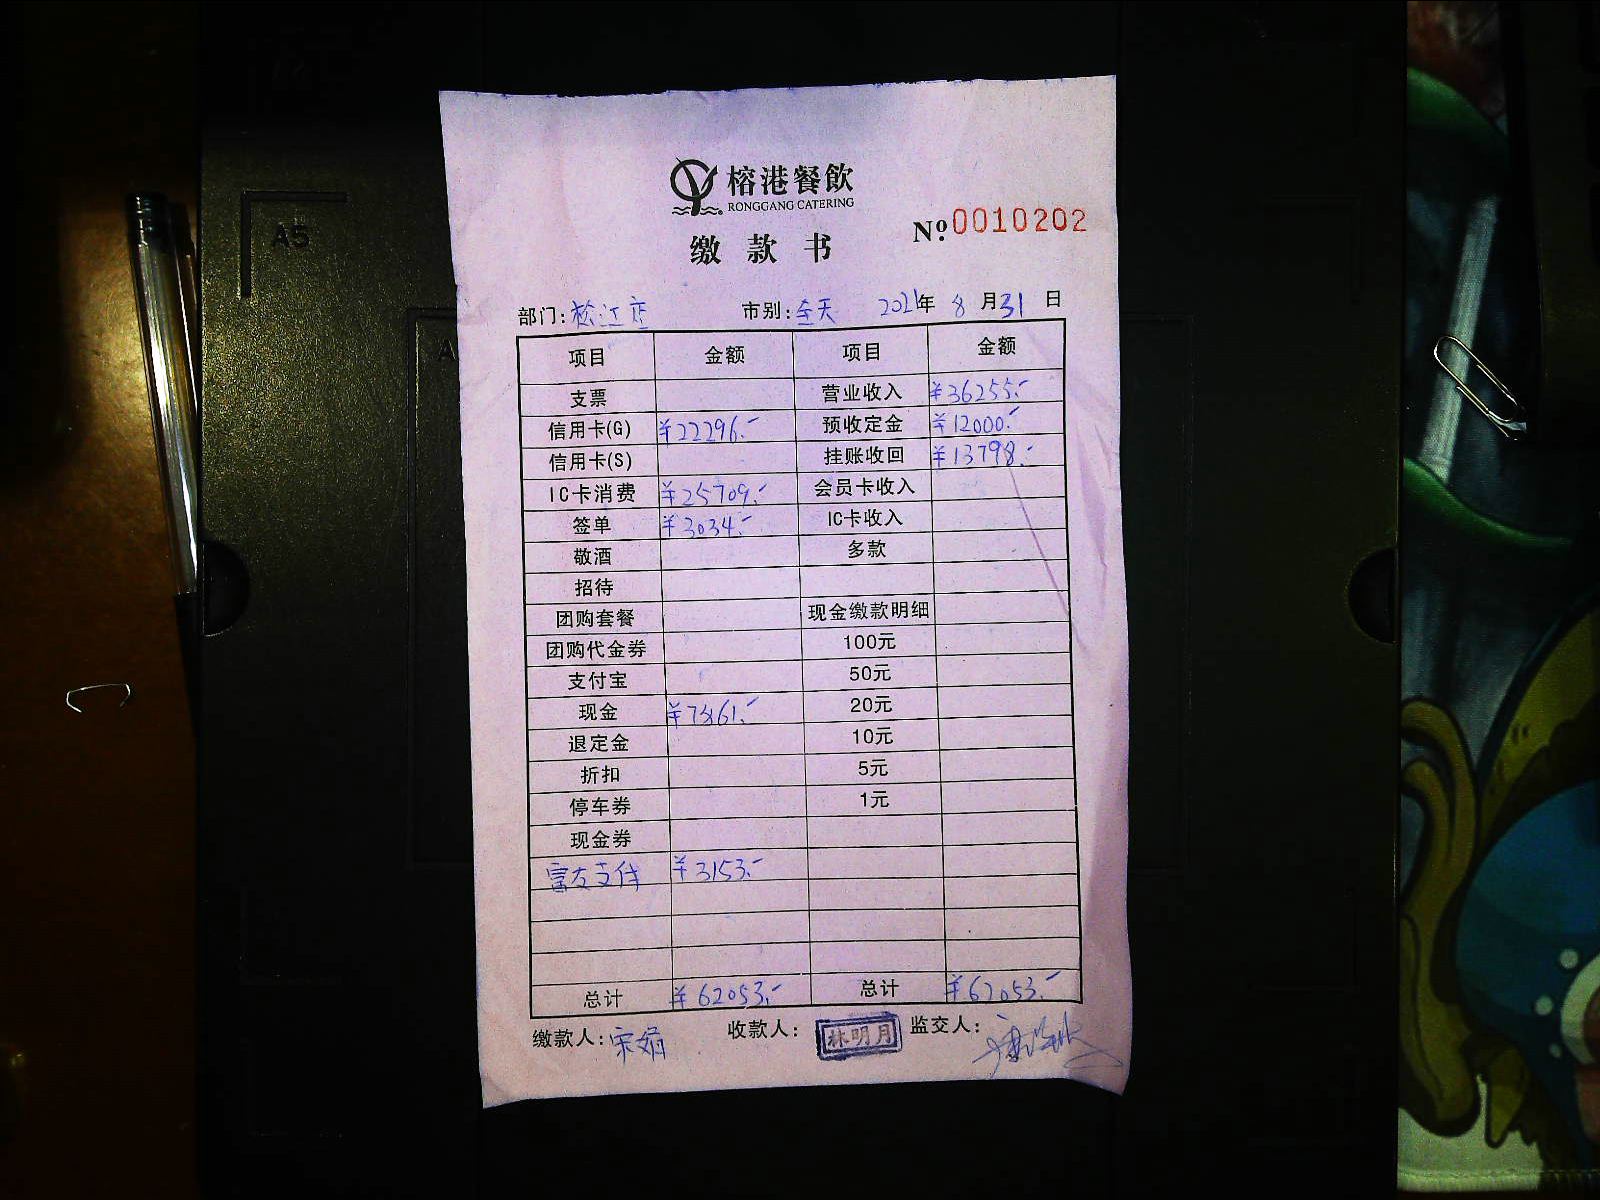 A5
榕港餐飲
RONGGANG CATERING
缴款书
Nº.0010202
部门:松江店 市别:全天 2021年8月31日
项目 金额 项目 金额
支票 营业收入 ¥36255.-
信用卡(G) ¥22296.- 预收定金 ¥12000.-
信用卡(S) 挂账收回 ¥13798.-
IC卡消费 ¥25709.- 会员卡收入
签单 ¥3034.- IC卡收入
敬酒 多款
招待
团购套餐 现金缴款明细
团购代金券 100元
支付宝 50元
现金 ¥7861.- 20元
退定金 10元
折扣 5元
停车券 1元
现金券
富友支付 ¥3153.-
总计 ¥62053.- 总计 ¥62053.-
缴款人:宋娟 收款人:林明月 监交人: